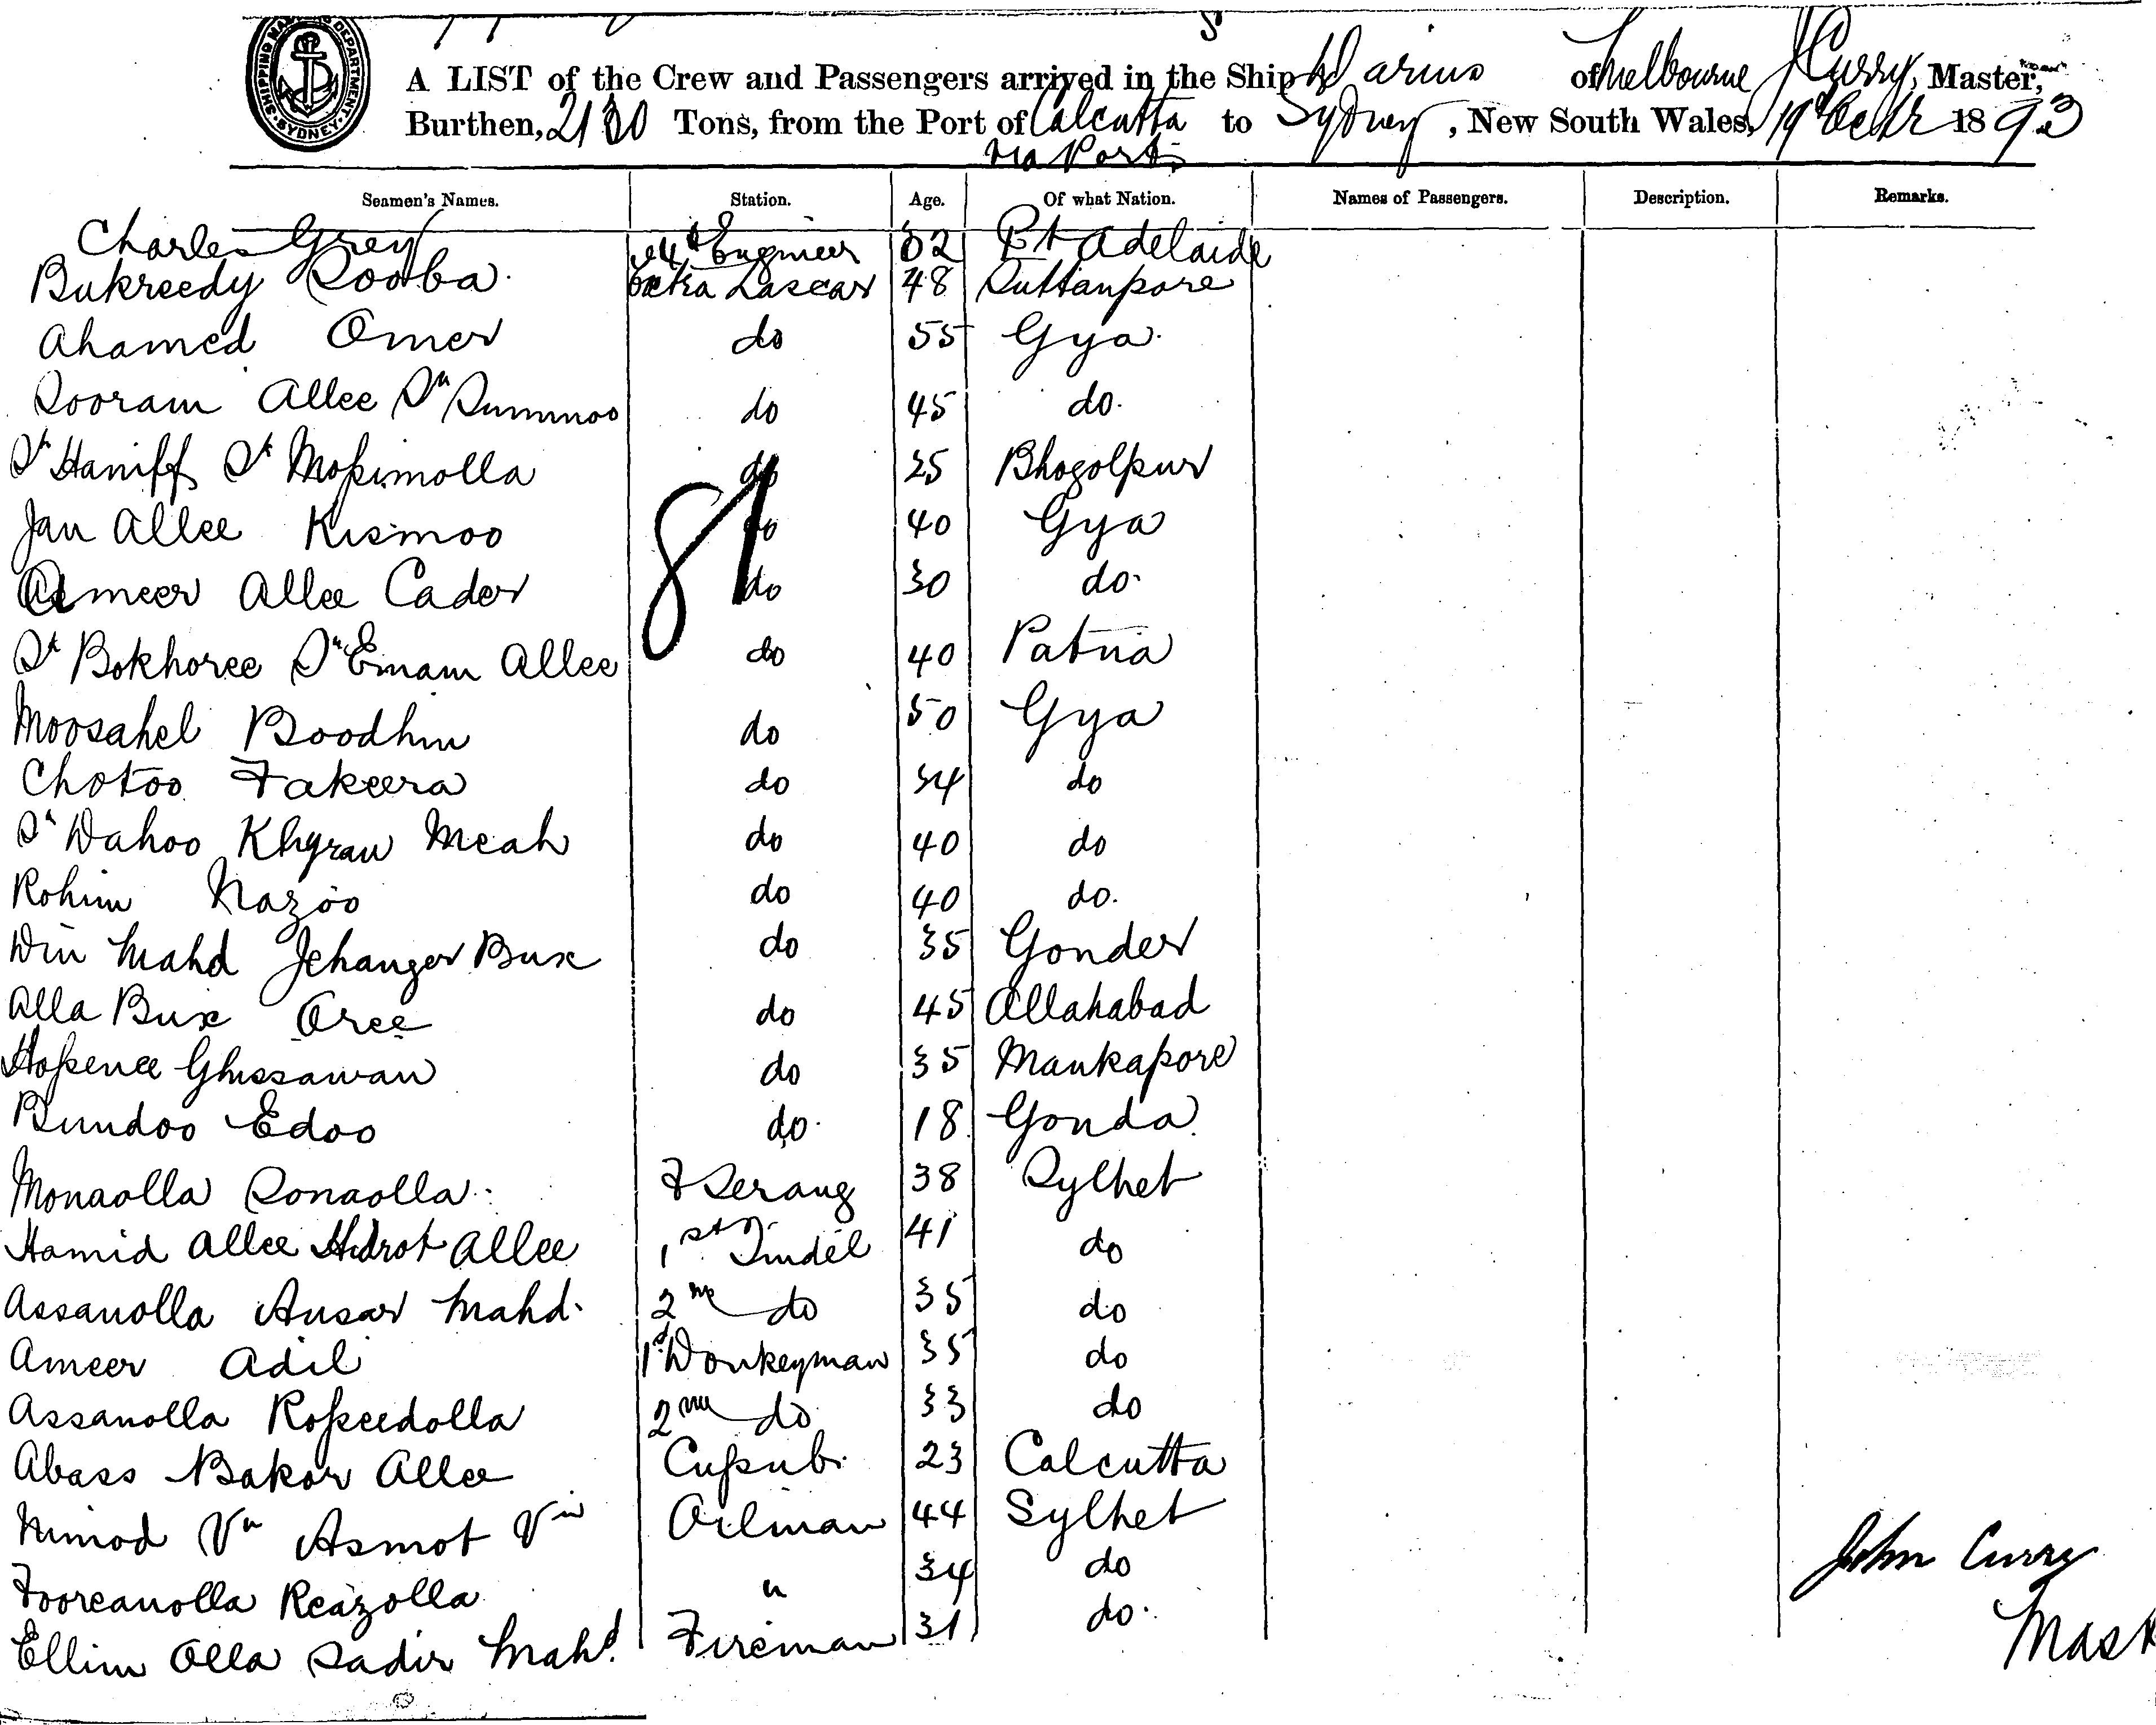 SHIPPING MASTER'S DEPARTMENT SYDNEY
A LIST of the Crew and Passengers arrived in the Ship Darius of Melbourne J Curry, Master,
Burthen, 2130 Tons, from the Port of Calcutta to Sydney, New South Wales, 19th Octr 1893
via Ports
Seamen's Names. Station. Age. Of what Nation. Names of Passengers. Description. Remarks.
Charles Grey 4th Engineer 32 Pt Adelaide
Bukreedy Sooba Extra Lascar 48 Sultanpore
Ahamed Omer do 55 Gya
Sooram Allee Sk Summoo do 45 do
Sk Haniff Sk Mopimolla do 25 Bhogolpur
81
Jan Allee Kismoo do 40 Gya
Ameer Allee Cader do 30 do
Sk Bokhoree Sk Emam Allee do 40 Patna
Moosahel Boodhu do 50 Gya
Chotoo Fakeera do 34 do
Sk Dahoo Khyrau Meah do 40 do
Rohim Nazoo do 40 do
Din Mahd Jehanger Bux do 35 Gonder
Alla Bux Oree do 45 Allahabad
Hosenee Ghissawan do 35 Mankapore
Bundoo Edoo do 18 Gonda
Monaolla Sonaolla F Serang 38 Sylhet
Hamid Allee Hidrot Allee 1st Tindel 41 do
Assanolla Ansar Mahd 2nd do 35 do
Ameer Adil 1st Donkeyman 35 do
Assanolla Roseedolla 2nd do 33 do
Abass Bakor Allee 23 Calcutta
Nimod Asmot Oilman 44 Sylhet
Fooreanolla Reazolla " 34 do
Ellim Olla Sadir Mahd Fireman 31 do
John Curry
Mast